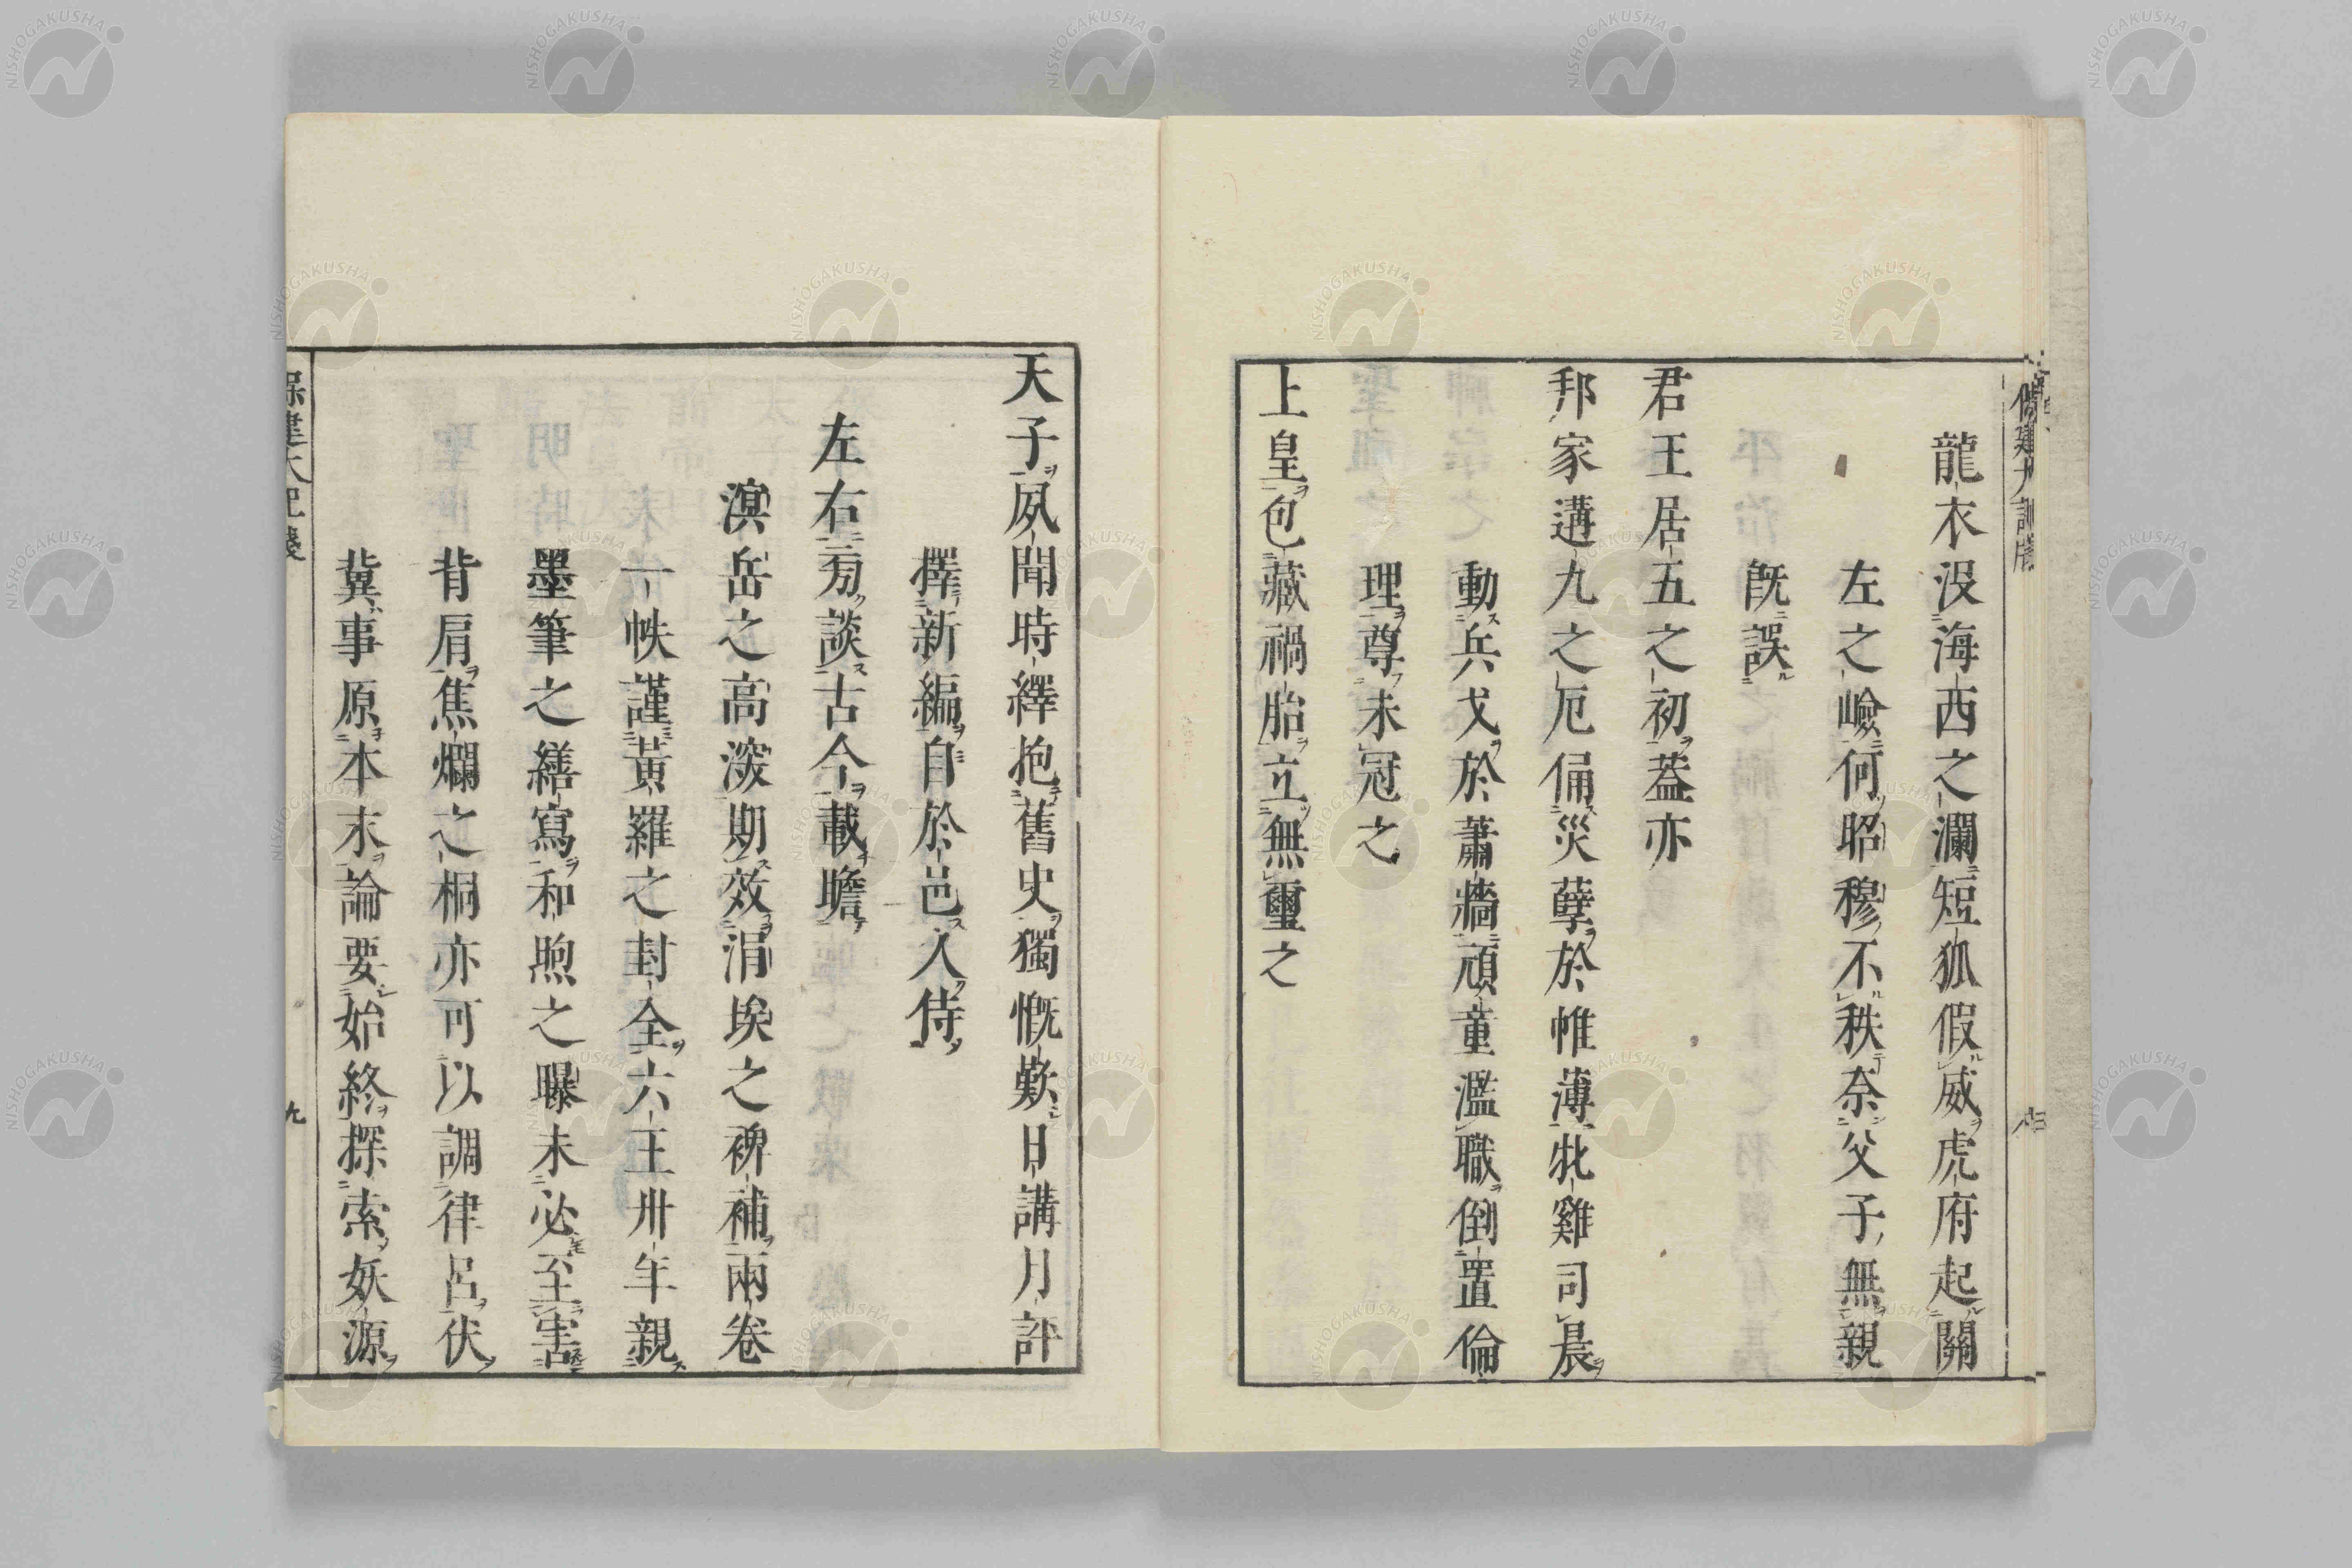 龍衣没海西之瀾短狐假威虎府起關
左之嶮何昭穆不秩奈父子無親
既誤
君王居五之初蓋亦
邦家遘九之厄俑災孽於帷薄牝雞司晨
動兵戈於蕭牆頑童濫職倒置倫
理尊未冠之
上皇包藏禍胎立無璽之
天子夙聞時繹抱舊史獨慨歎日講月評
擇新編自於邑入侍
左右旁談古今載瞻
溟岳之高深期效涓埃之裨補兩卷
一帙謹黃羅之封全六王卅年親
墨筆之繕寫和煦之曝未必至害
背肩焦爛之桐亦可以調律呂伏
冀事原本末論要始終探索妖源
保建大記牋
九
NISHOGAKUSHA